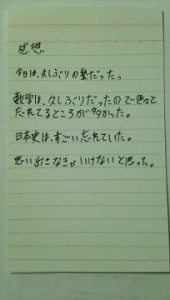 感想
今日は、久しぶりの塾だった。
数学は、久しぶりだったので色々と
忘れてるところが多かった。
日本史は、すごい忘れていた。
思い出さなきゃいけないと思った。